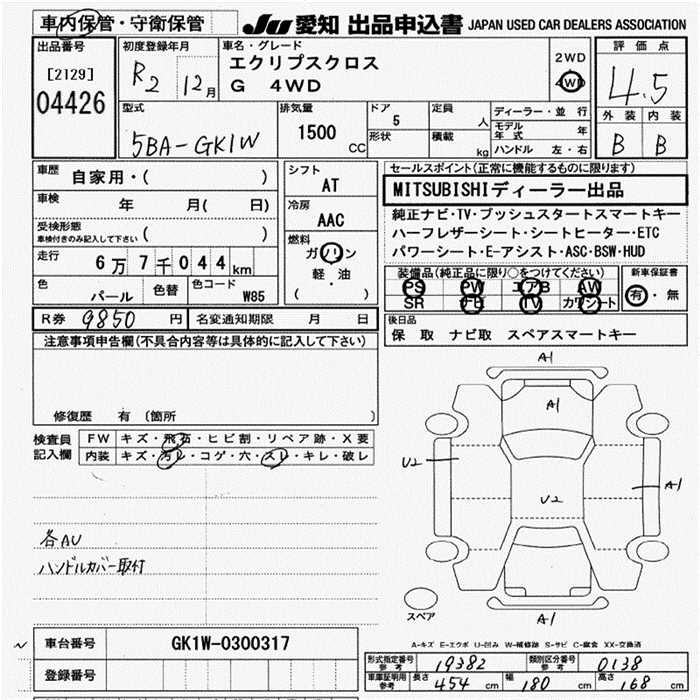 車内保管・守衛保管
JU 愛知 出品申込書 JAPAN USED CAR DEALERS ASSOCIATION
出品番号
[2129]
04426
初度登録年月
R2 12月
車名・グレード
エクリプスクロス
G 4WD
2WD
4WD
評価点
4.5
外装 内装
B B
型式
5BA-GK1W
排気量
1500 CC
ドア
5
形状
定員
人
積載
kg
ディーラー・並行
モデル年式 年
ハンドル 左・右
車歴
自家用・( )
車検
年 月( 日)
受検形態
車検付きのみ記入して下さい ( )
走行
6万7千044km
色
パール
色替
色コード
W85
シフト
AT
冷房
AAC
燃料
ガソリン
軽・油
( )
セールスポイント(正常に機能するものに限ります)
MITSUBISHIディーラー出品
純正ナビ・TV・プッシュスタートスマートキー
ハーフレザーシート・シートヒーター・ETC
パワーシート・E-アシスト・ASC・BSW・HUD
装備品(純正品に限り○をつけてください)
PS PW エアB AW
SR ナビ TV カワシート
新車保証書
有・無
R券 9850 円
名変通知期限 月 日
後日品
保 取 ナビ取 スペアスマートキー
注意事項申告欄(不具合内容等は具体的に記入して下さい)
修復歴 有 〔箇所 〕
検査員記入欄
FW キズ・飛石・ヒビ割・リペア跡・X要
内装 キズ・汚レ・コゲ・穴・スレ・キレ・破レ
各AU
ハンドルカバー取付
A1
A1
U2
U2
A1
A1
スペア
A-キズ E-エクボ U-凹み W-補修跡 S-サビ C-腐食 XX-交換済
車台番号 GK1W-0300317
登録番号
形式指定番号 参考 19382
類別区分番号 参考 0138
車庫証明用参考 長さ 454 cm 幅 180 cm 高さ 168 cm